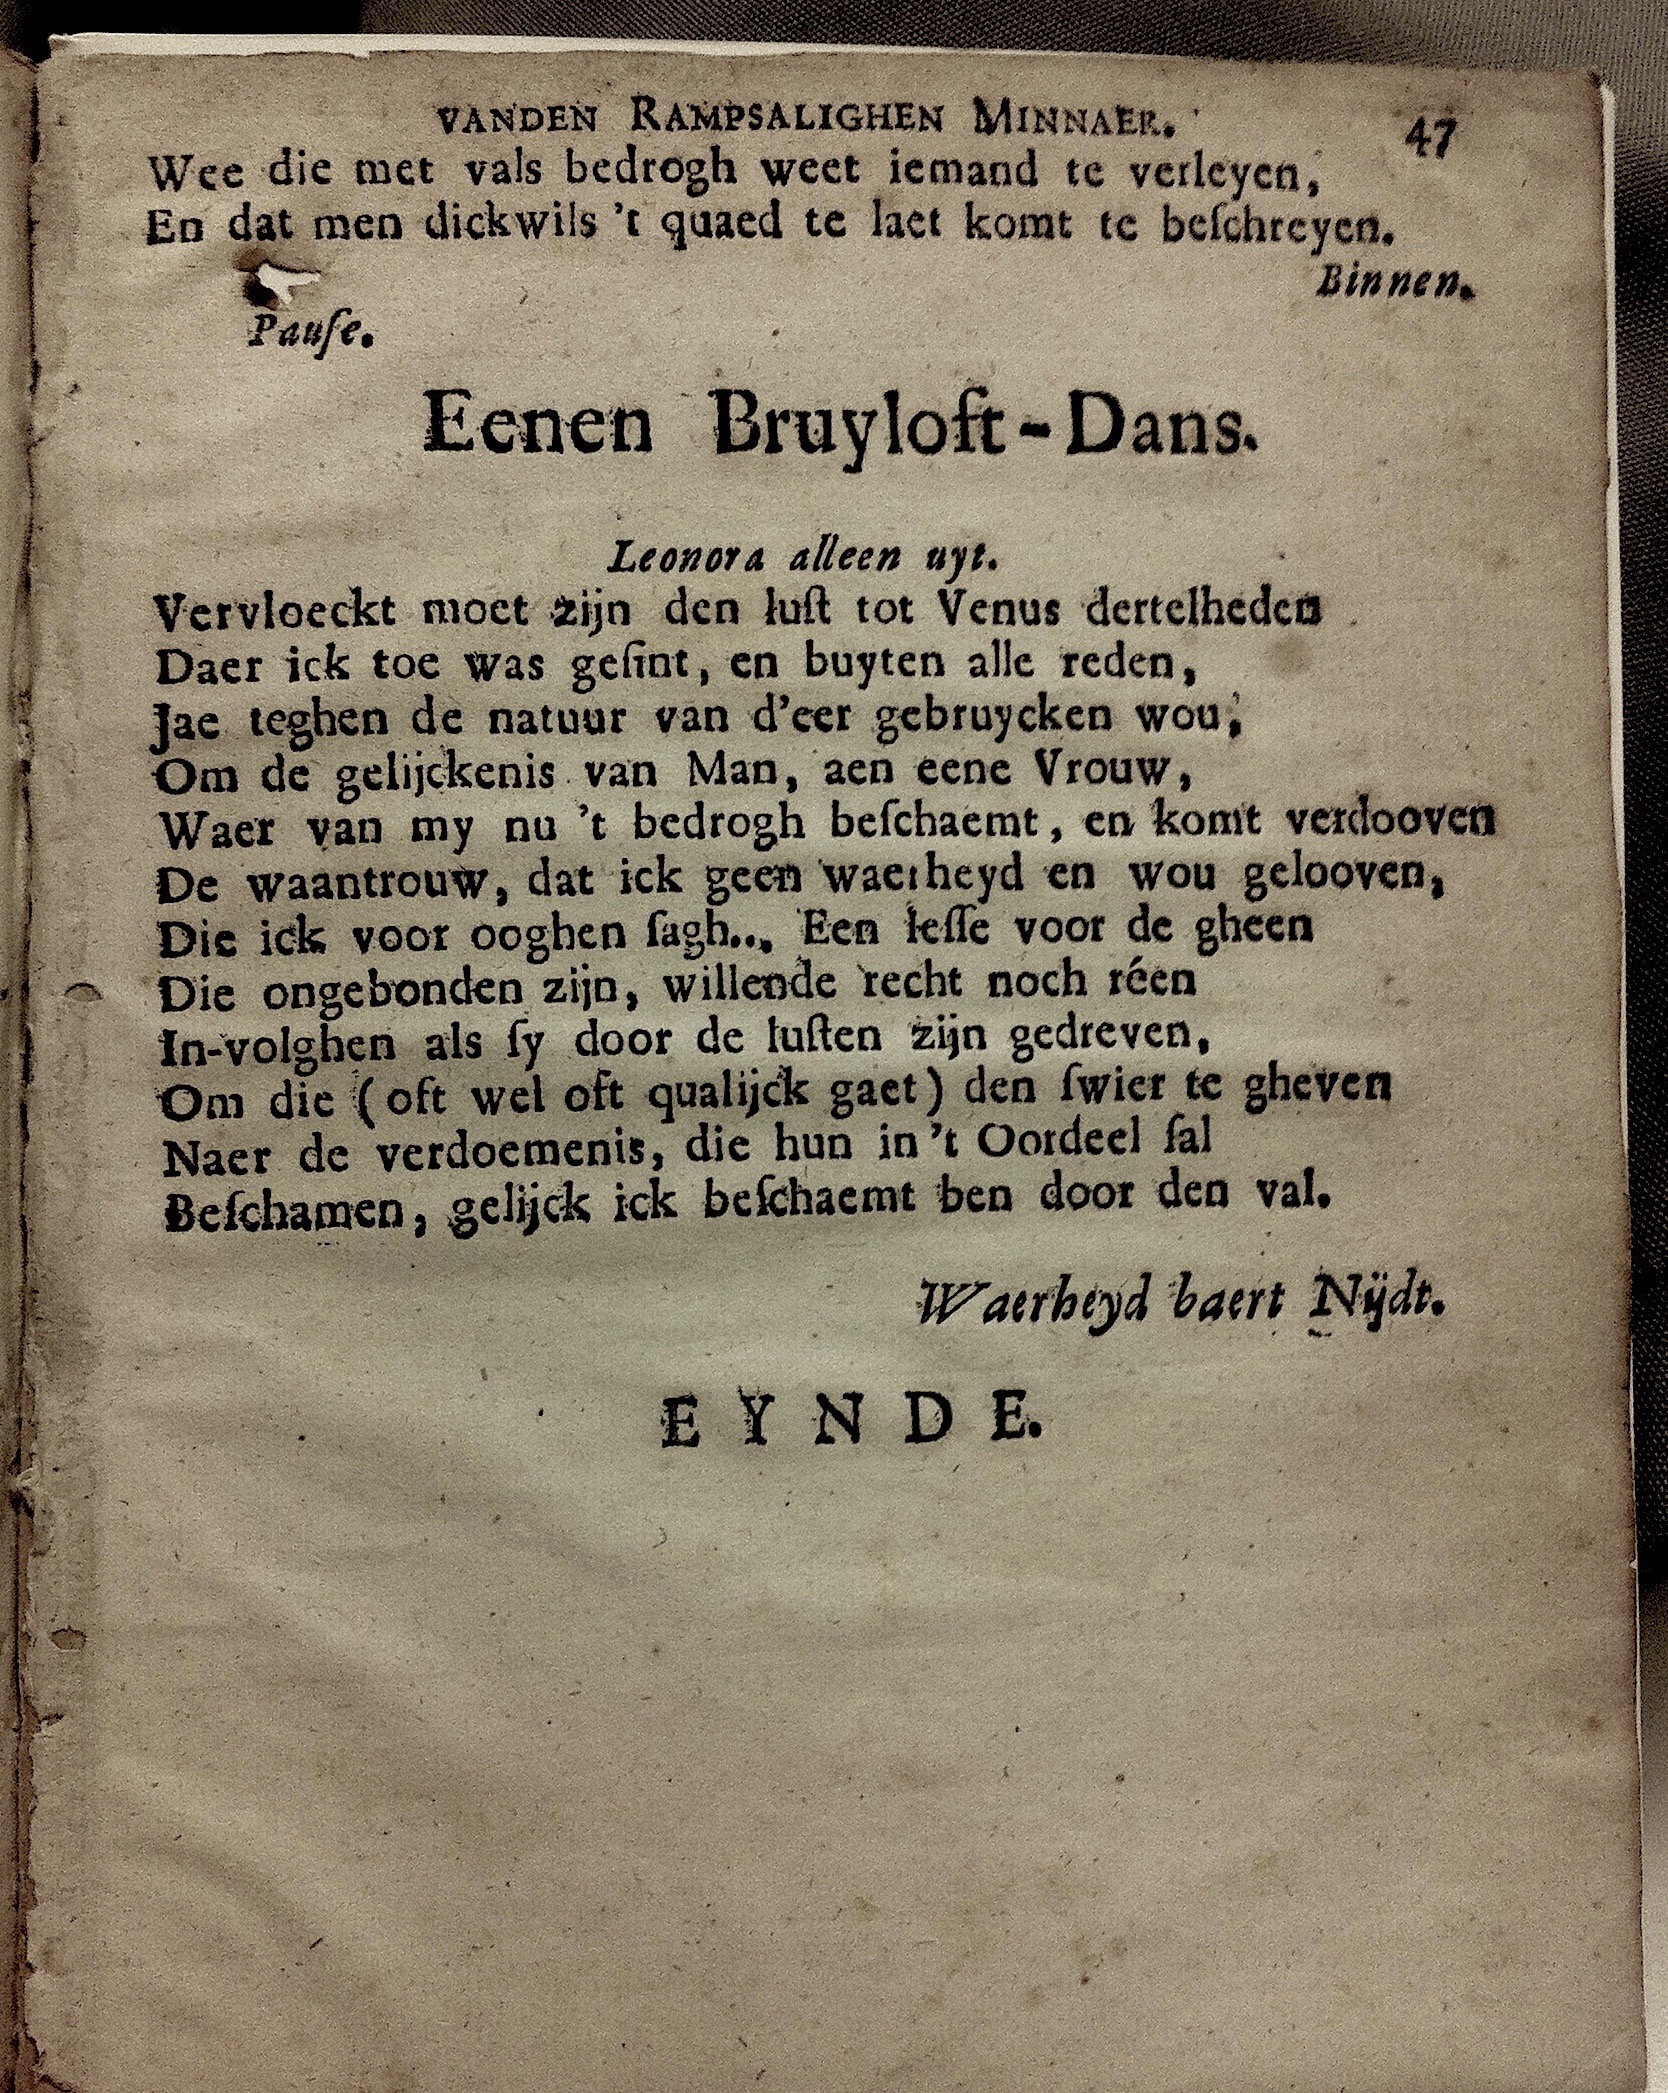 VANDEN RAMPSALIGHEN MINNAER. 47
Wee die met vals bedrogh weet iemand te verleyen,
En dat men dickwils 't quaed te laet komt te beſchreyen.
Binnen.
Pauſe.
Eenen Bruyloft-Dans.
Leonora alleen uyt.
Vervloeckt moet zijn den luſt tot Venus dertelheden
Daer ick toe was geſint, en buyten alle reden,
Jae teghen de natuur van d'eer gebruycken wou,
Om de gelijckenis van Man, aen eene Vrouw,
Waer van my nu 't bedrogh beſchaemt, en komt verdooven
De waantrouw, dat ick geen waerheyd en wou gelooven,
Die ick voor ooghen ſagh... Een leſſe voor de gheen
Die ongebonden zijn, willende recht noch réen
In-volghen als ſy door de luſten zijn gedreven,
Om die (oft wel oft qualijck gaet) den ſwier te gheven
Naer de verdoemenis, die hun in 't Oordeel ſal
Beſchamen, gelijck ick beſchaemt ben door den val.
Waerheyd baert Nijdt.
EYNDE.